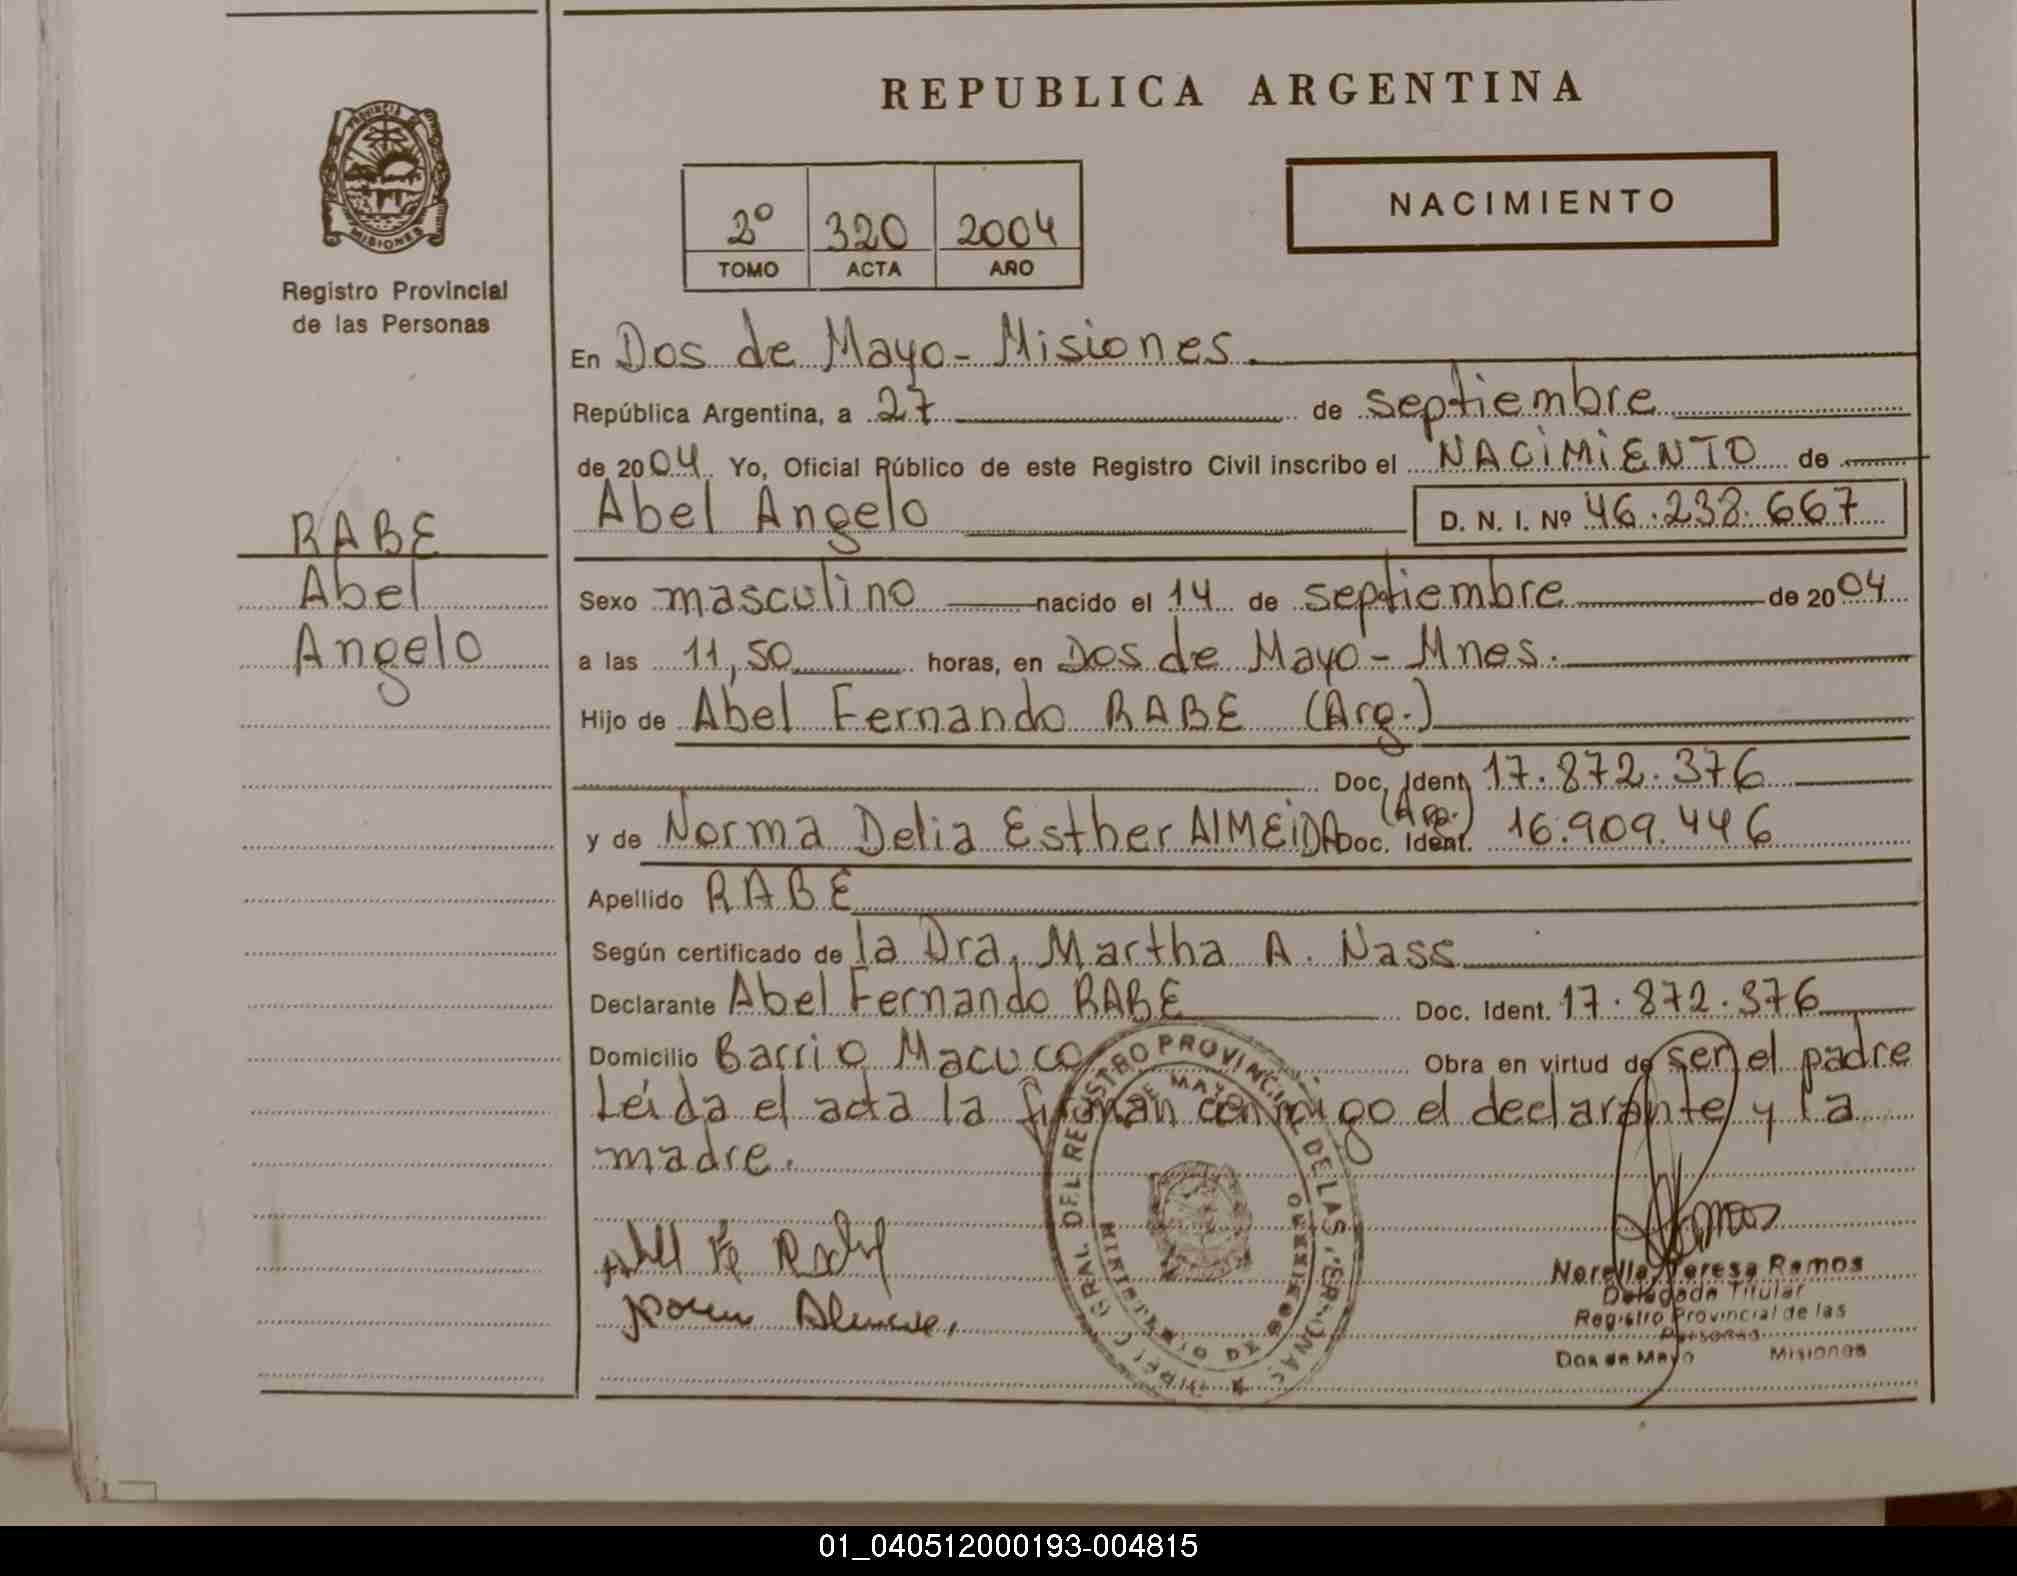 REPUBLICA ARGENTINA
PROVINCIA DE
MISIONES
Registro Provincial
de las Personas
NACIMIENTO
2º 320 2004
TOMO ACTA AÑO
En Dos de Mayo - Misiones.
República Argentina, a 27 de septiembre
de 2004. Yo, Oficial Público de este Registro Civil inscribo el NACIMIENTO de
Abel Angelo D. N. I. Nº 46.238.667
RABE
Abel
Angelo
Sexo masculino nacido el 14 de septiembre de 2004
a las 11,50 horas, en Dos de Mayo - Mnes.
Hijo de Abel Fernando RABE (Arg.)
Doc. Ident. 17.872.376
y de Norma Delia Esther AlMEiDA (Arg.) Doc. Ident. 16.909.446
Apellido RABE
Según certificado de la Dra. Martha A. Nass
Declarante Abel Fernando RABE Doc. Ident. 17.872.376
Domicilio Barrio Macuco Obra en virtud de ser el padre
Leída el acta la firman conmigo el declarante y la
madre.
Norella Teresa Ramos
Delegada Titular
Registro Provincial de las
Personas
Dos de Mayo Misiones
01_040512000193-004815